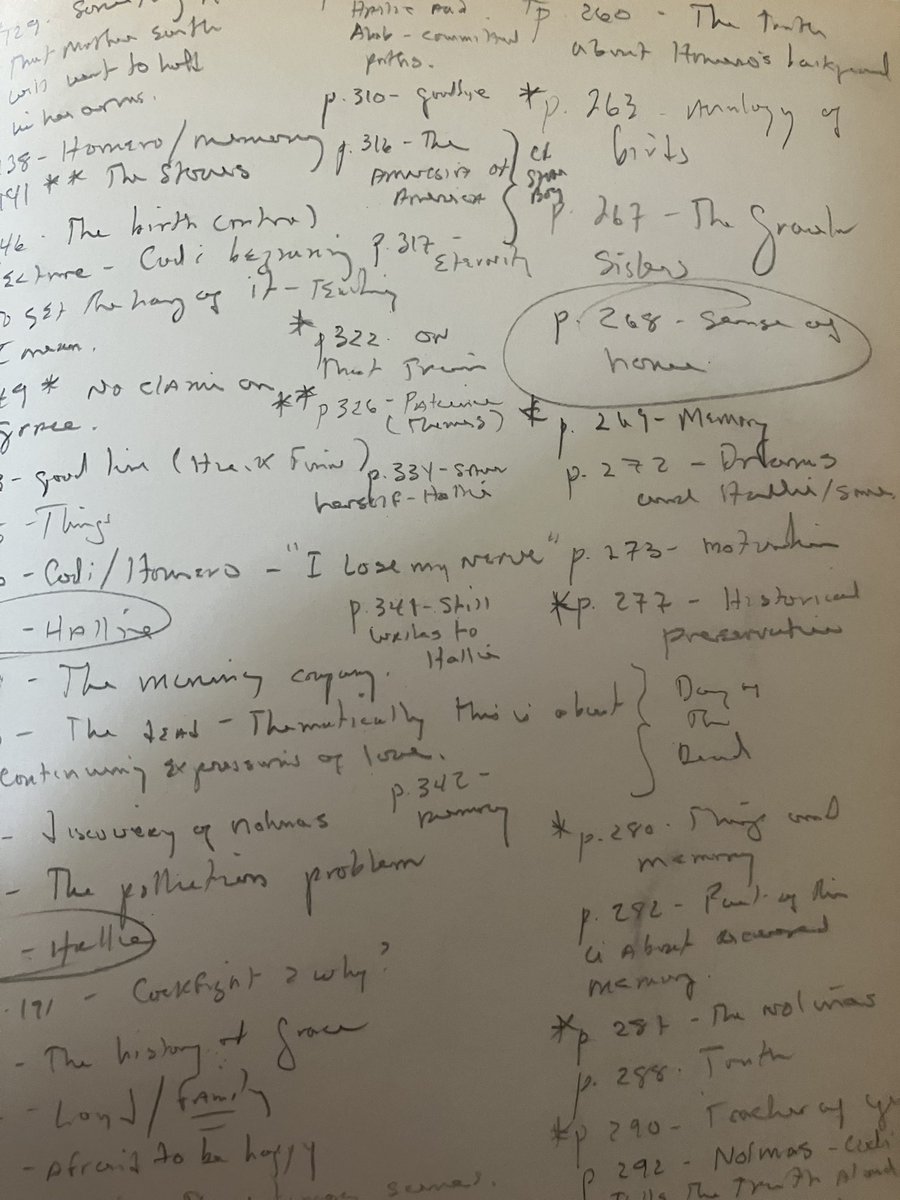 129.
That Mother Earth
will want to hold
in her arms.
138 - Homero/memory
141 ** The Stones
46. The birth control
lecture - Codi beginning
to get the hang of it - Teaching
I mean.
49 * No claim on
grace.
- good line (Huck Finn)
- Things
- Codi/Homero - "I lose my nerve"
- Hallie
- The mining company.
- The dead - Thematically this is about
continuing expressions of love.
- discovery of Nolinas
- The pollution problem
- Hallie
191 - Cockfight & why?
- The history of Grace
- Land/family
- Afraid to be happy
Hallie and
- committed
paths.
p. 310 - goodbye
p. 316 - The
Amnesia of
America
p. 317 -
Eternity
* p 322 on
That Train
** p 326 - Patience
(Themes)
p. 334 -
herself - Hallie
p. 341 - Still
writes to
Hallie
p. 342 -
memory
p. 260 - The truth
about Homero's background
* p. 263 - Analogy of
birds
p. 267 - The Gracela
Sisters
p. 268 - Sense of
home
* p. 269 - Memory
p. 272 - Dreams
and Hallie/
p. 273 - motivation
* p. 277 - Historical
preservation
Day of
The
Dead
* p. 280. Things and
memory
p. 282 - Part of this
is about
memory.
* p 287 - The Nolinas
p. 288. Truth
* p 290 - Teacher of
p 292 - Nolinas - Codi
tells the truth